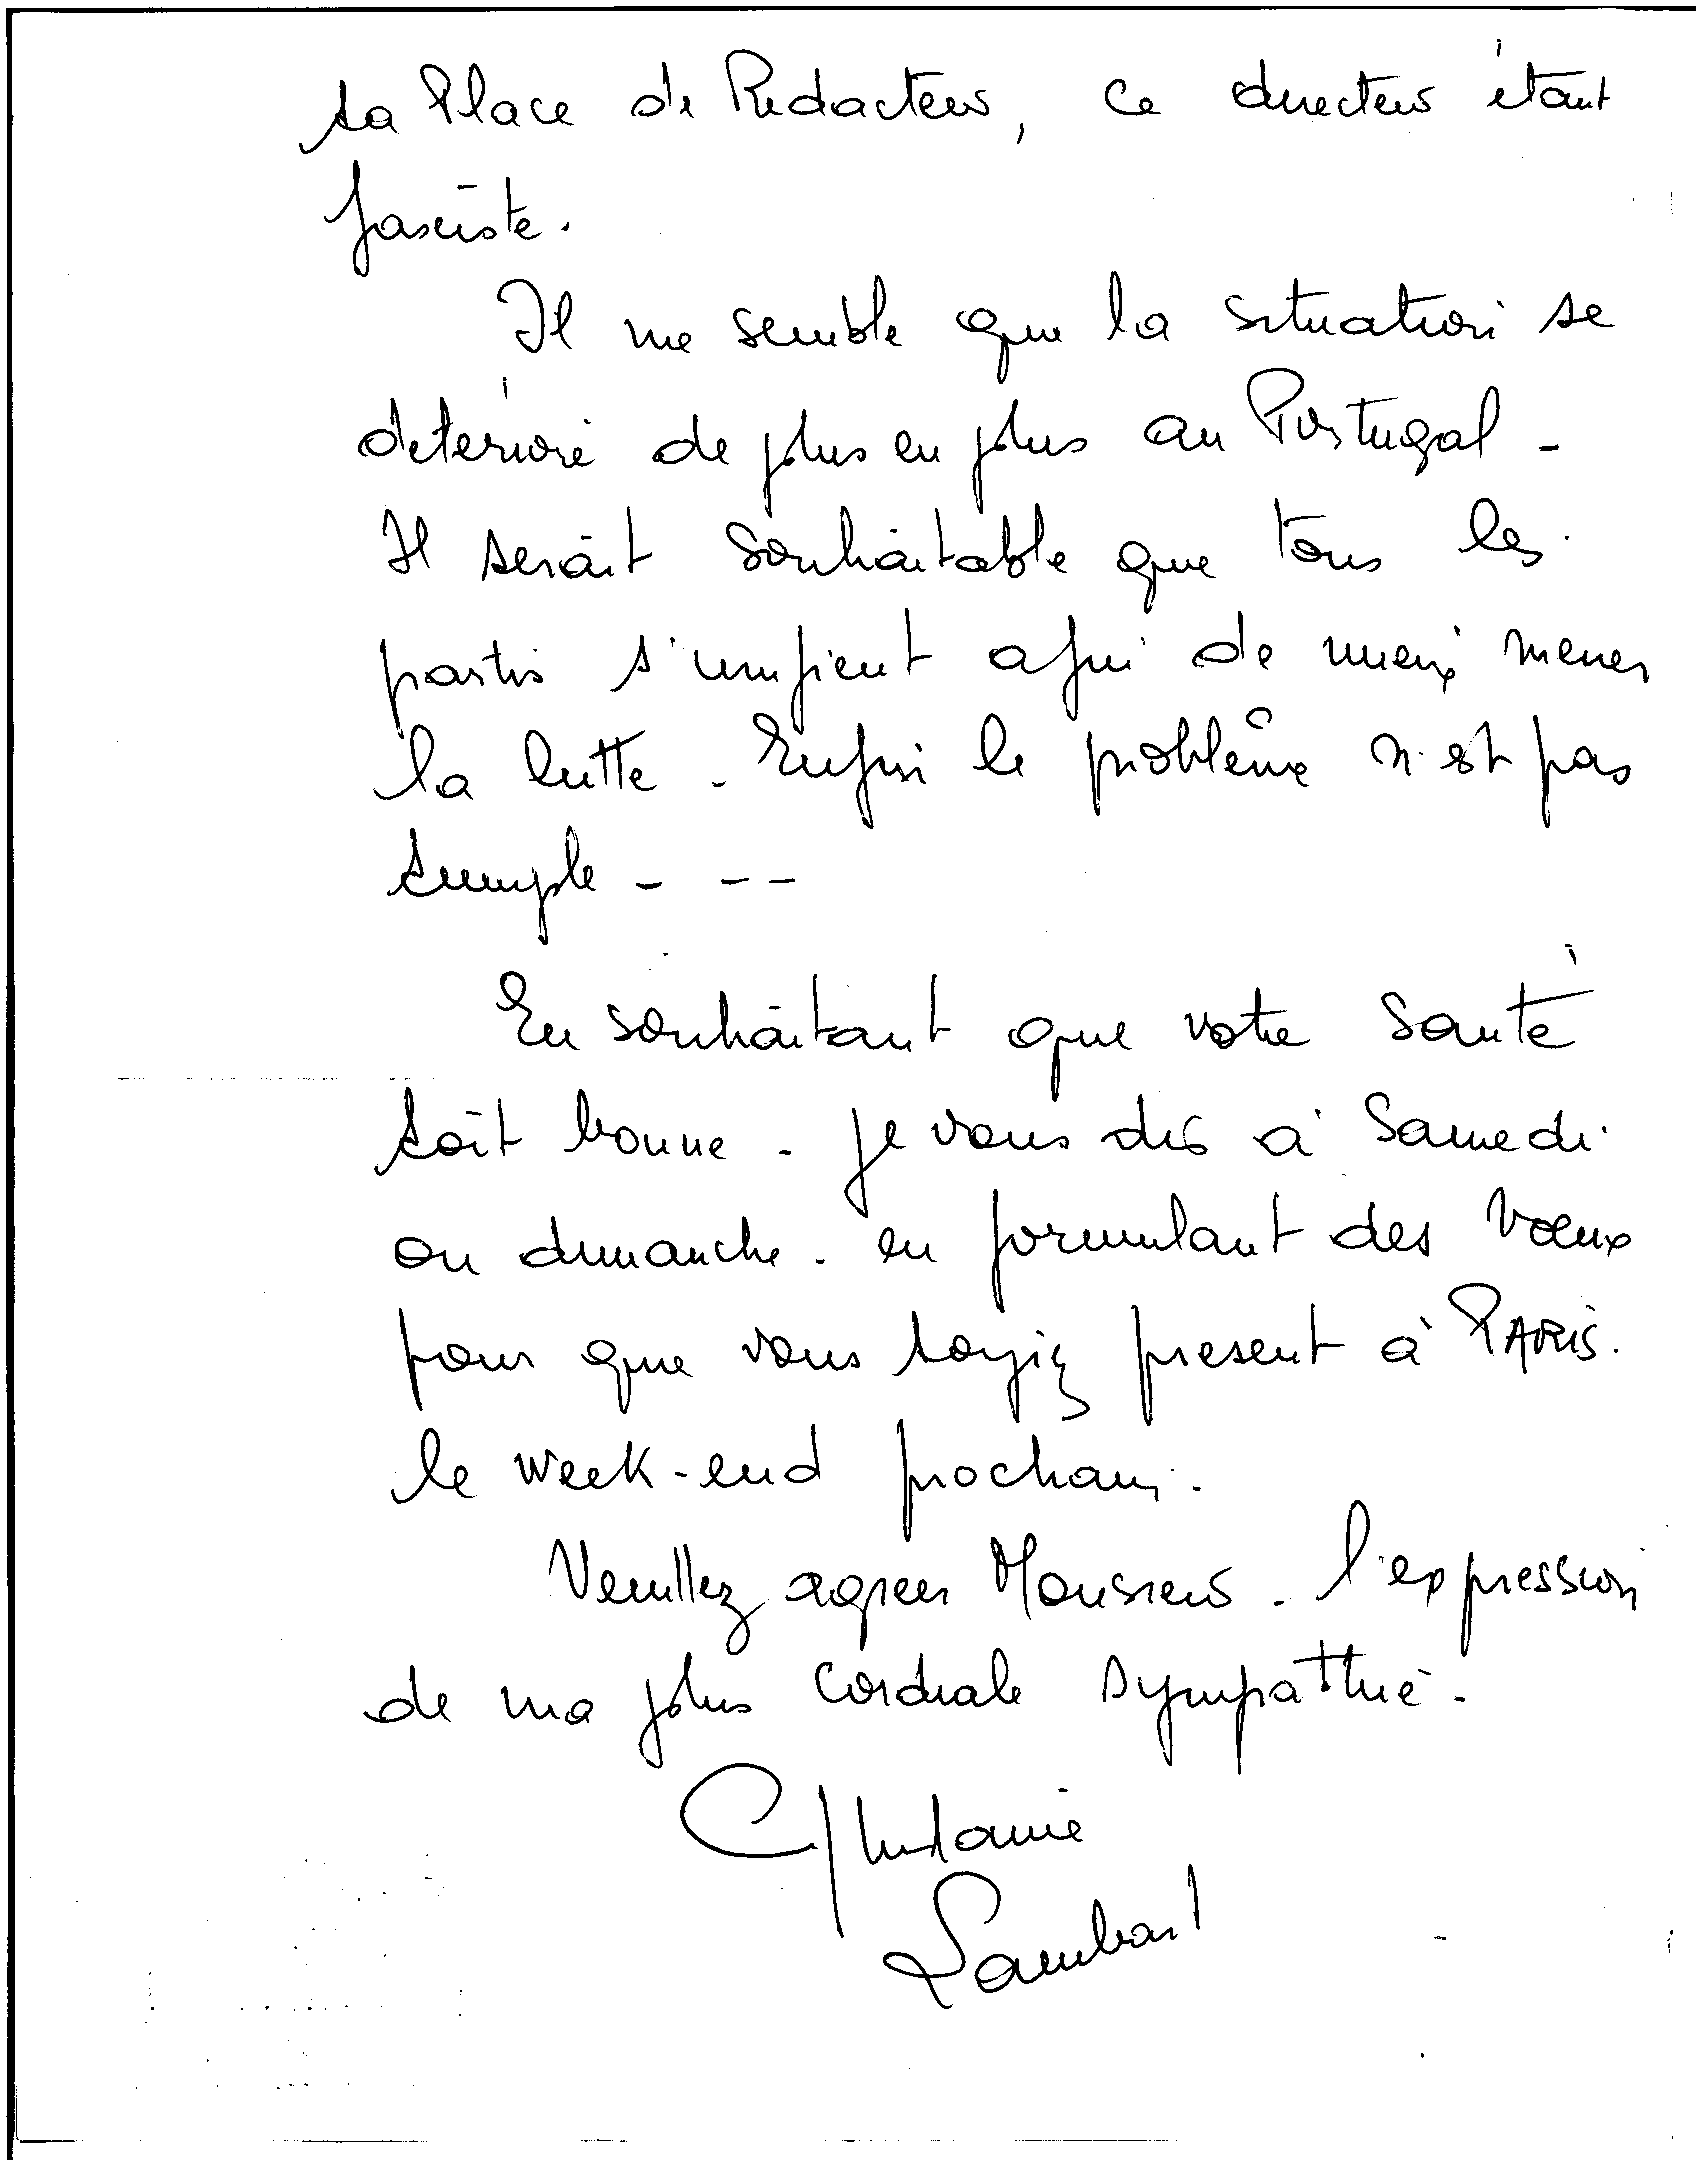 sa Place de Redacteur, ce directeur étant
fasciste.
Il me semble que la situation se
détériore de plus en plus au Portugal -
Il serait souhaitable que tous les
partis s'unifient afin de mieux mener
la lutte - Enfin le problème n'est pas
simple - - -
En souhaitant que votre santé
soit bonne - je vous dis à Samedi
ou dimanche - en formulant des vœux
pour que vous soyiez present à PARIS.
le week-end prochain.
Veuillez agreer Monsieur - l'expression
de ma plus Cordiale sympathie -
Ghislaine
Lambart